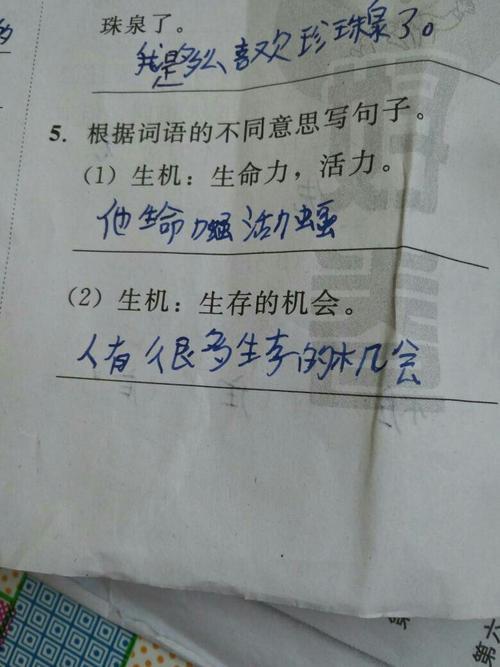 珠泉了。
我是多么喜欢珍珠泉了。
5. 根据词语的不同意思写句子。
(1) 生机：生命力，活力。
他生命力强活力强
(2) 生机：生存的机会。
人有很多生存的机会
第六